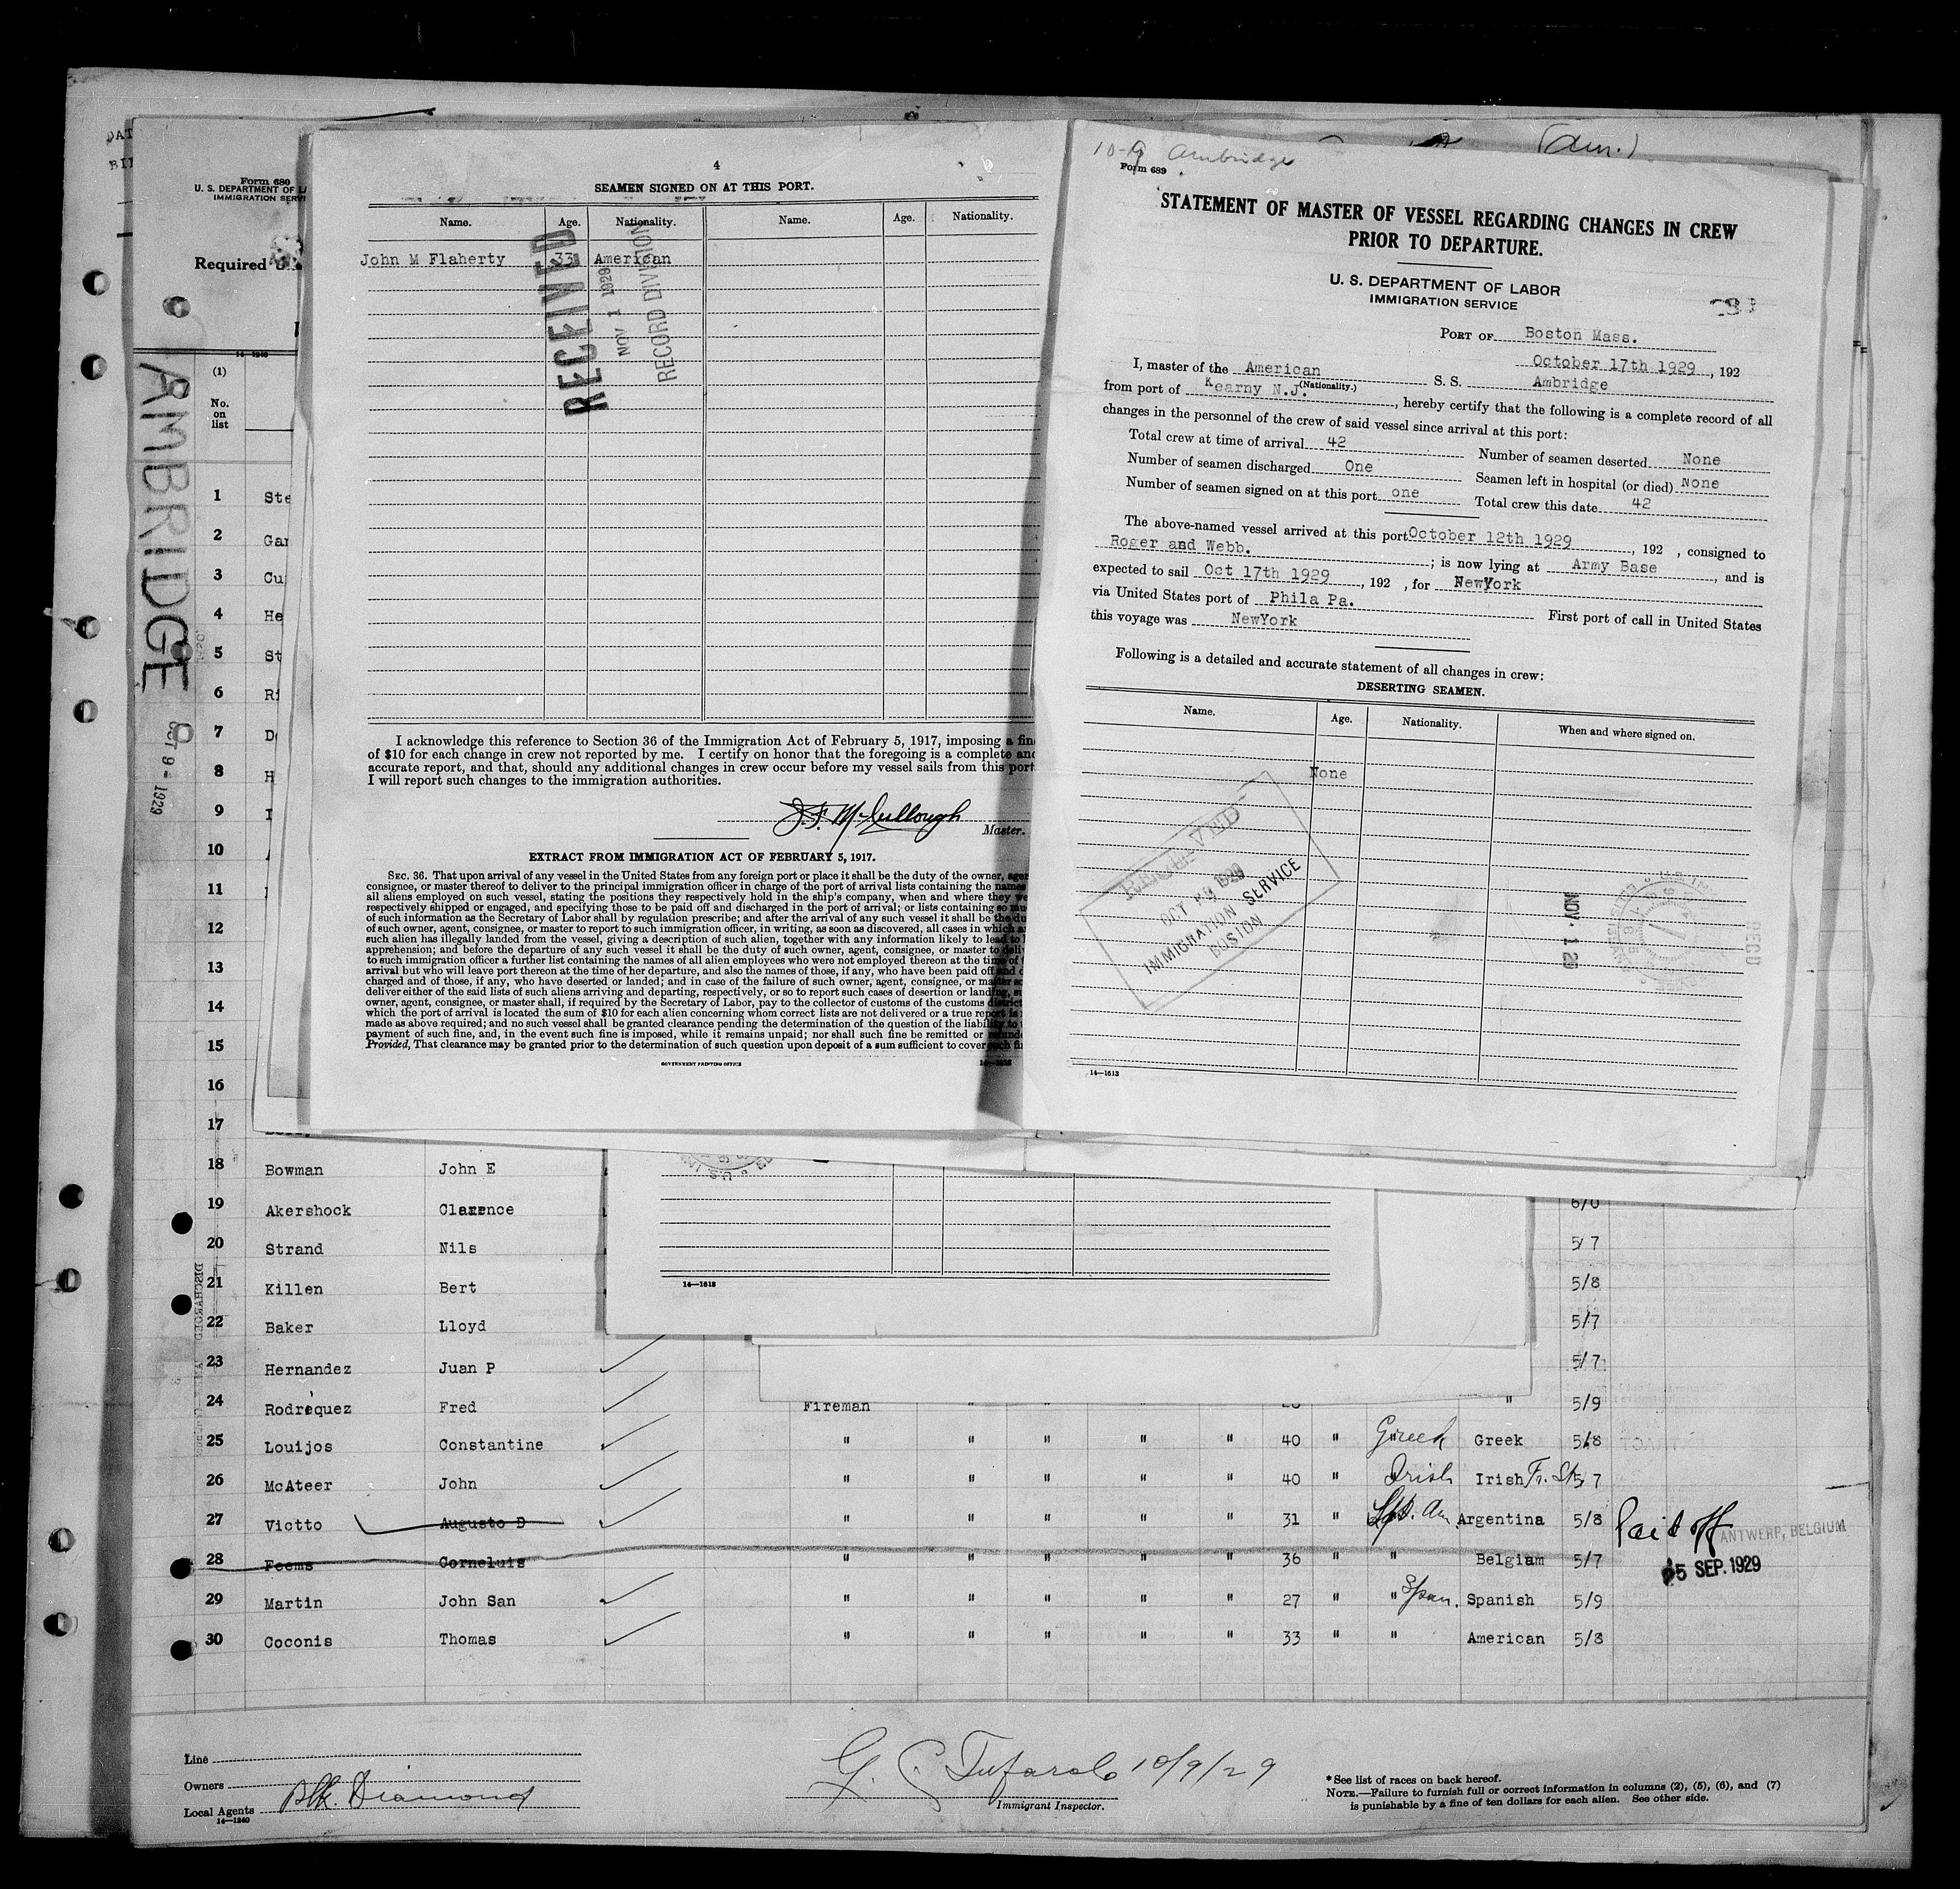 (Am.)
10-9 Ambridge
DAT
Form 680
U. S. DEPARTMENT OF L
IMMIGRATION SERVI
Required
14—1240
(1)
No.
on
list
AMBRIDGE
OCT 9 - 1929
4
SEAMEN SIGNED ON AT THIS PORT.
Name. Age. Nationality. Name. Age. Nationality.
John M Flaherty 33 American
RECEIVED
NOV 1 1929
RECORD DIVISION
I acknowledge this reference to Section 36 of the Immigration Act of February 5, 1917, imposing a fine
of $10 for each change in crew not reported by me. I certify on honor that the foregoing is a complete and
accurate report, and that, should any additional changes in crew occur before my vessel sails from this port
I will report such changes to the immigration authorities.
J. F. McCullough
Master.
EXTRACT FROM IMMIGRATION ACT OF FEBRUARY 5, 1917.
SEC. 36. That upon arrival of any vessel in the United States from any foreign port or place it shall be the duty of the owner, agent
consignee, or master thereof to deliver to the principal immigration officer in charge of the port of arrival lists containing the names
all aliens employed on such vessel, stating the positions they respectively hold in the ship's company, when and where they we
respectively shipped or engaged, and specifying those to be paid off and discharged in the port of arrival; or lists containing so mu
of such information as the Secretary of Labor shall by regulation prescribe; and after the arrival of any such vessel it shall be the du
of such owner, agent, consignee, or master to report to such immigration officer, in writing, as soon as discovered, all cases in which a
such alien has illegally landed from the vessel, giving a description of such alien, together with any information likely to lead to
apprehension; and before the departure of any such vessel it shall be the duty of such owner, agent, consignee, or master to deli
to such immigration officer a further list containing the names of all alien employees who were not employed thereon at the time of
arrival but who will leave port thereon at the time of her departure, and also the names of those, if any, who have been paid off and d
charged and of those, if any, who have deserted or landed; and in case of the failure of such owner, agent, consignee, or master so
deliver either of the said lists of such aliens arriving and departing, respectively, or so to report such cases of desertion or landing, su
owner, agent, consignee, or master shall, if required by the Secretary of Labor, pay to the collector of customs of the customs district
which the port of arrival is located the sum of $10 for each alien concerning whom correct lists are not delivered or a true report is n
made as above required; and no such vessel shall be granted clearance pending the determination of the question of the liability to
payment of such fine, and, in the event such fine is imposed, while it remains unpaid; nor shall such fine be remitted or refunde
Provided, That clearance may be granted prior to the determination of such question upon deposit of a sum sufficient to cover such fi
GOVERNMENT PRINTING OFFICE
Form 689
STATEMENT OF MASTER OF VESSEL REGARDING CHANGES IN CREW
PRIOR TO DEPARTURE.
U. S. DEPARTMENT OF LABOR
IMMIGRATION SERVICE
PORT OF Boston Mass.
October 17th 1929, 192
I, master of the American S. S. Ambridge
(Nationality.)
from port of Kearny N.J., hereby certify that the following is a complete record of all
changes in the personnel of the crew of said vessel since arrival at this port:
Total crew at time of arrival 42 Number of seamen deserted None
Number of seamen discharged One Seamen left in hospital (or died) None
Number of seamen signed on at this port one Total crew this date 42
The above-named vessel arrived at this port October 12th 1929, 192 , consigned to
Roger and Webb. ; is now lying at Army Base, and is
expected to sail Oct 17th 1929, 192 , for NewYork
via United States port of Phila Pa. First port of call in United States
this voyage was NewYork
Following is a detailed and accurate statement of all changes in crew:
DESERTING SEAMEN.
Name. Age. Nationality. When and where signed on.
None
RECEIVED
OCT 1929
IMMIGRATION SERVICE
BOSTON
NOV 1 29
RECD
14—1613
1 Ste
2 Gar
3 Cu
4 He
5 St
6 Ri
7 D
8 H
9 I
10
11
12
13
14
15
16
17
18 Bowman John E
19 Akershock Clarence 6/0
20 Strand Nils 5/7
21 Killen Bert 5/8
22 Baker Lloyd 5/7
23 Hernandez Juan P 5/7
24 Rodrequez Fred Fireman " " " " " 5/9
25 Louijos Constantine " " " " " 40 " " Greek Greek 5/8
26 McAteer John " " " " " 40 " Irish Irish Fr. St. 5/7
27 Victto Augusto D " " " " " 31 " Sp. Am. Argentina 5/8 Paid off
28 Feems Corneluis " " " " " 36 " " Belgiam 5/7
ANTWERP, BELGIUM
25 SEP. 1929
29 Martin John San " " " " " 27 " " Span. Spanish 5/9
30 Coconis Thomas " " " " " 33 " " American 5/8
14—1613
Line
Owners
Local Agents Blk. Diamond
14—1240
G. C. Tufarolo 10/9/29
Immigrant Inspector.
* See list of races on back hereof.
NOTE.—Failure to furnish full or correct information in columns (2), (5), (6), and (7)
is punishable by a fine of ten dollars for each alien. See other side.